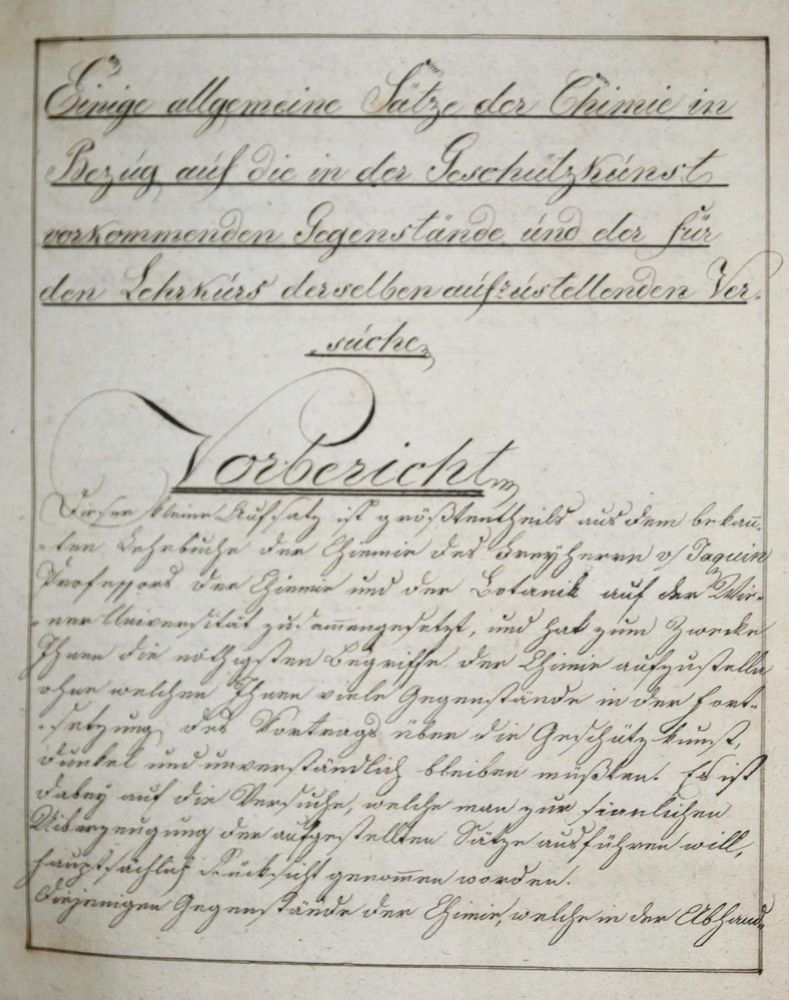 Einige allgemeine Sätze der Chimie in
Bezug auf die in der Geschützkunst
vorkommenden Gegenstände und der für
den Lehrkurs derselben aufzustellenden Ver-
suche
Vorbericht
Dieser kleine Aufsatz ist größtentheils aus dem bekañ-
-ten Lehrbuche der Chiemie des Freyherrn v/ Jaquin
Professors der Chiemie und der Botanik auf der Wie-
-ner Universität zusammengesetzt, und hat zum Zwecke
Ihnen die nöthigsten Begriffe der Chimie aufzustellen
ohne welchen Ihnen viele Gegenstände in der Fort-
-setzung des Vortrags über die Geschützkunst,
dunkel und unverständlich bleiben müßten. Es ist
dabey auf die Versuche, welche man zur sinnlichen
Uiberzeugung der aufgestellten Sätze ausführen will,
hauptsächlich Rücksicht genom̄en worden.
Diejenigen Gegenstände der Chimie, welche in der Abhand-